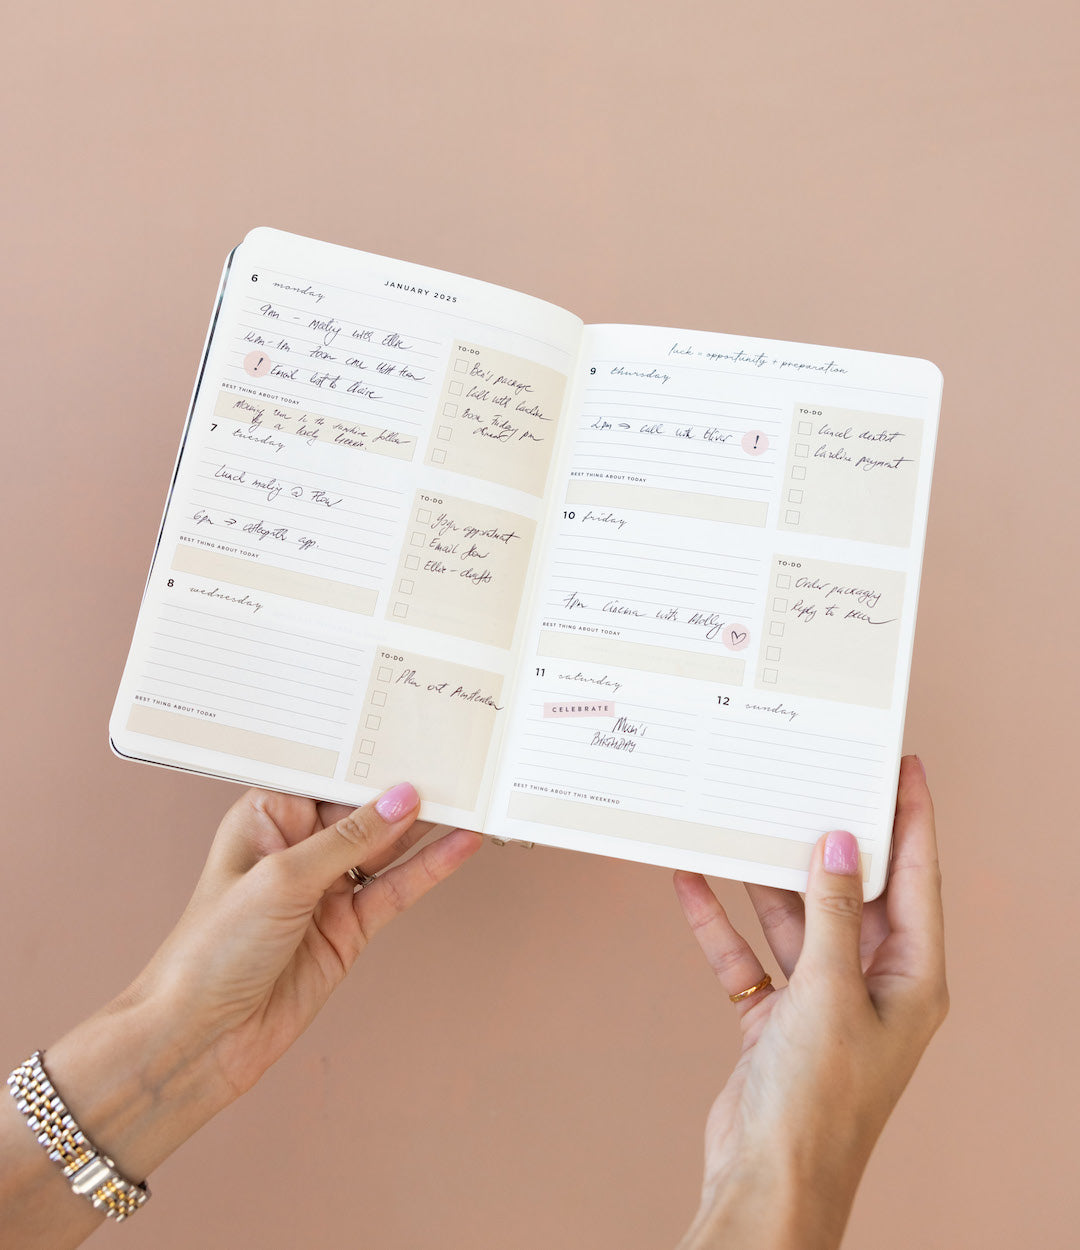 JANUARY 2025
6 monday
9am - Meeting with Ellie
12pm - 1pm Zoom call with team
! Email list to Claire
BEST THING ABOUT TODAY
to the sunshine
by a
TO-DO
Ben's package
Call with Caroline
Book Friday pm
dinner
7 tuesday
Lunch meeting @ Flow
6pm → osteopath app.
BEST THING ABOUT TODAY
TO-DO
Yoga appointment
Email flow
Ellie - drafts
8 wednesday
BEST THING ABOUT TODAY
TO-DO
Plan out Amsterdam
luck = opportunity + preparation
9 thursday
2pm → call with Oliver !
BEST THING ABOUT TODAY
TO-DO
Cancel dentist
Caroline payment
10 friday
7pm Cinema with Molly
BEST THING ABOUT TODAY
TO-DO
Order packaging
Reply to
11 saturday
CELEBRATE
Mum's
BIRTHDAY
12 sunday
BEST THING ABOUT THIS WEEKEND